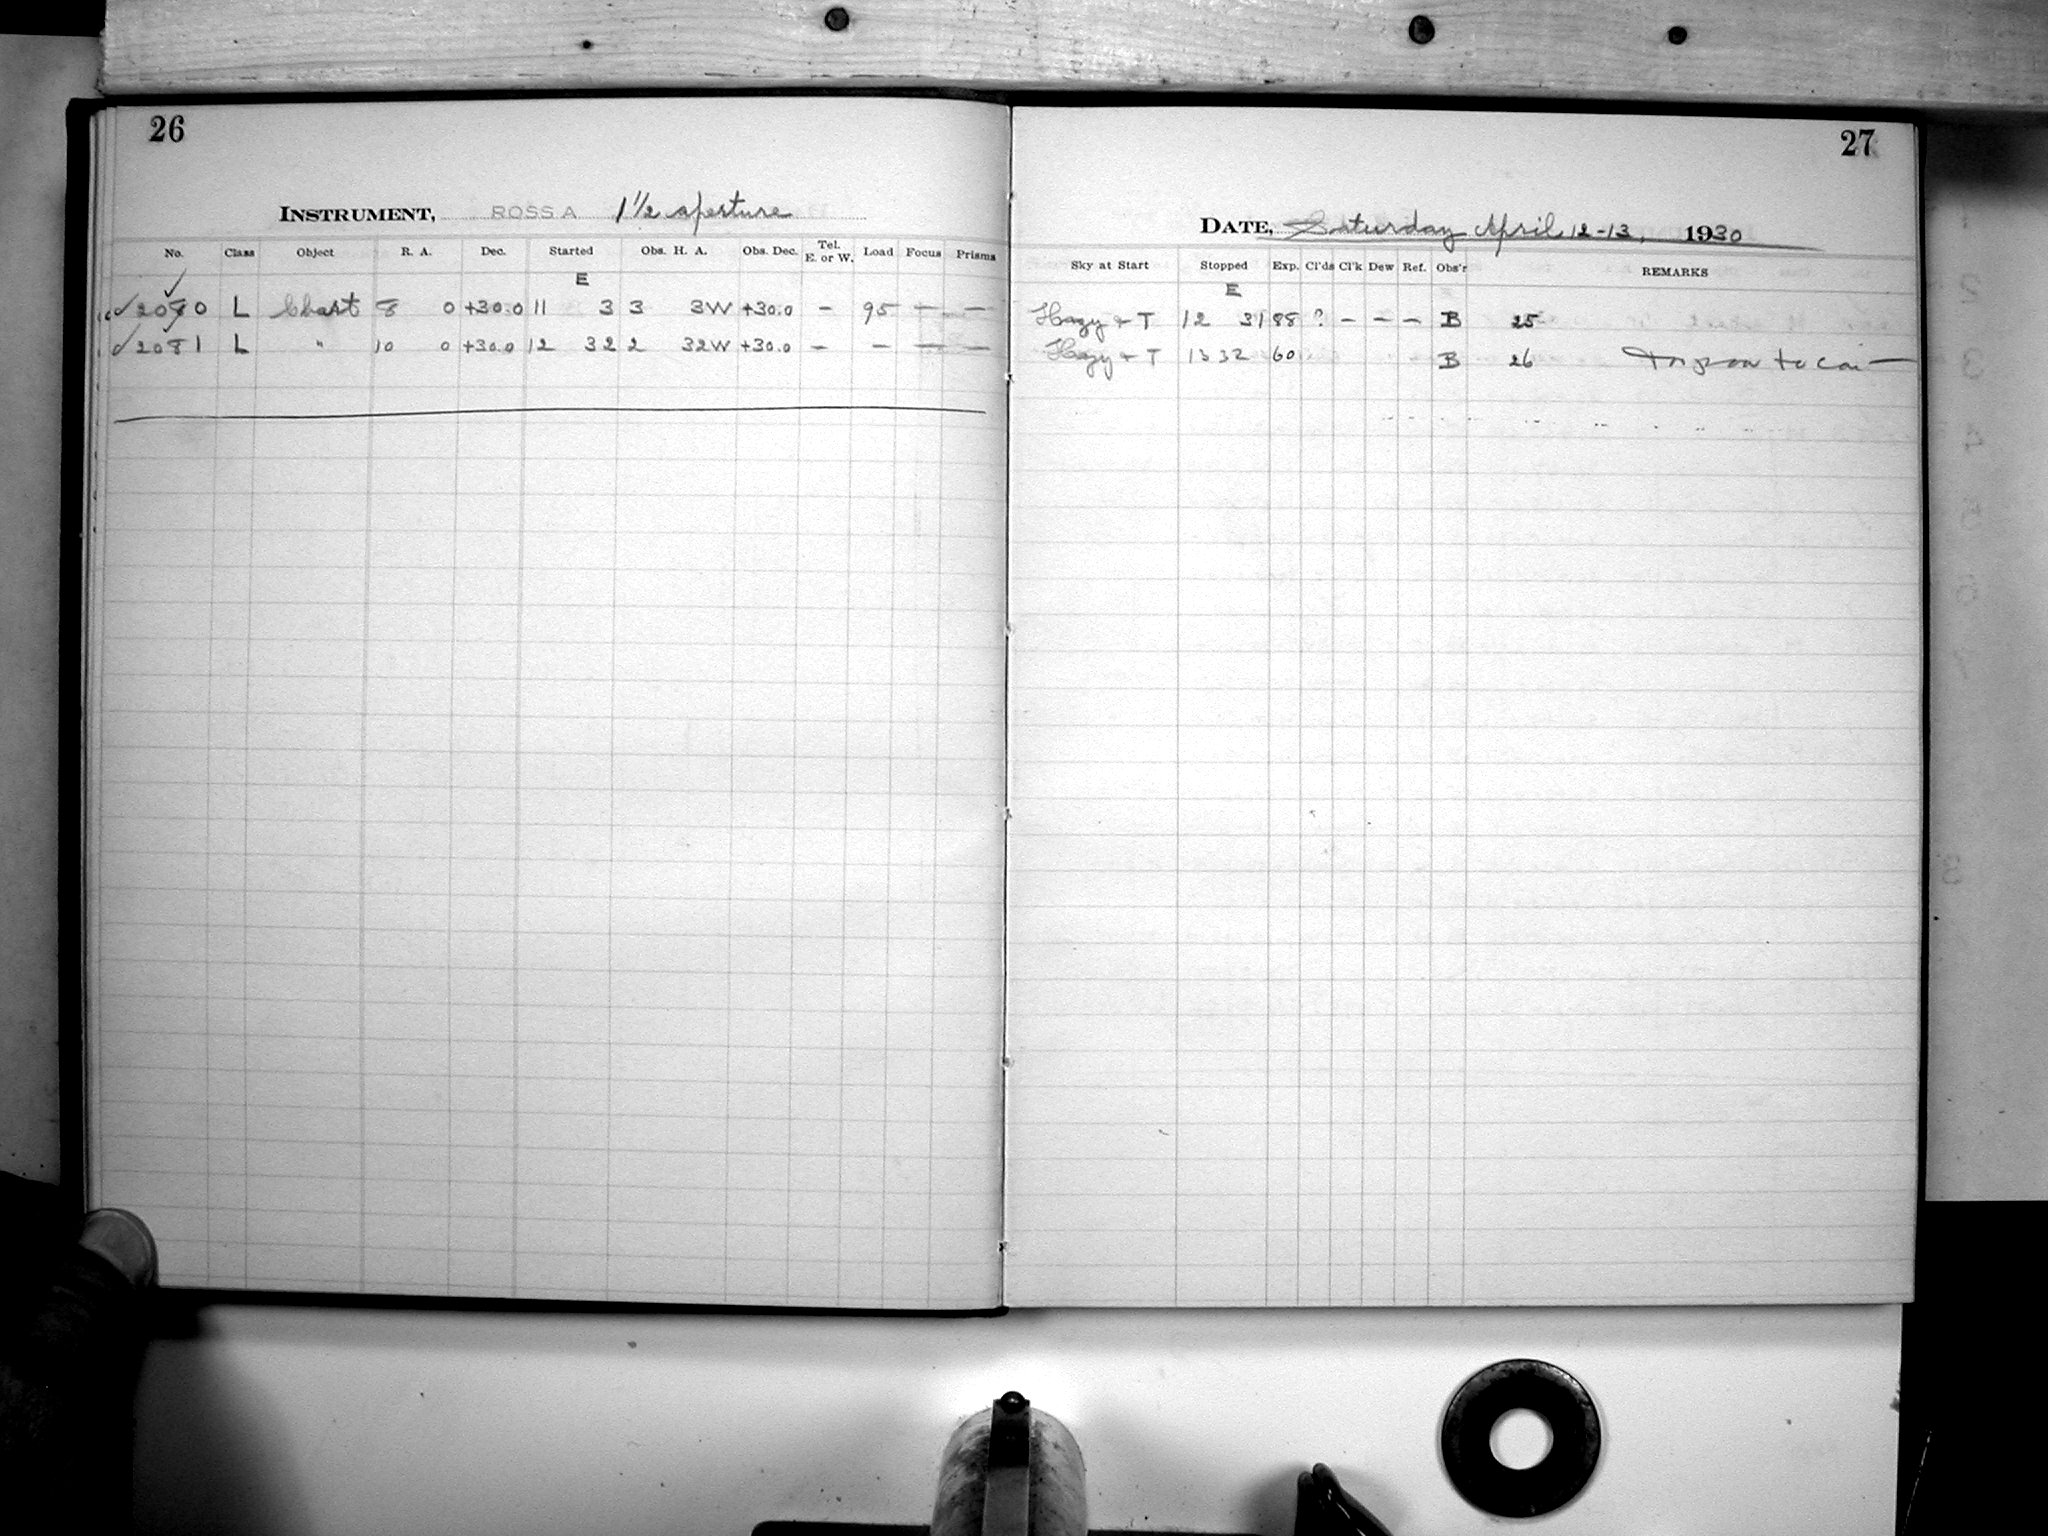 26
INSTRUMENT, ROSS A 1 1/2 aperture
No. Class Object R. A. Dec. Started Obs. H. A. Obs. Dec. Tel. E. or W. Load Focus Prisms
E
✓2080 L Chart 8 0 +30.0 11 3 3 3W +30.0 — 95 — —
✓2081 L " 10 0 +30.0 12 32 2 32W +30.0 — — — —
27
DATE, Saturday April 12-13, 1930
Sky at Start Stopped Exp. Cl'ds Cl'k Dew Ref. Obs'r REMARKS
E
Hazy + T 12 31 88 ? — — — B 25
Hazy + T 13 32 60 B 26